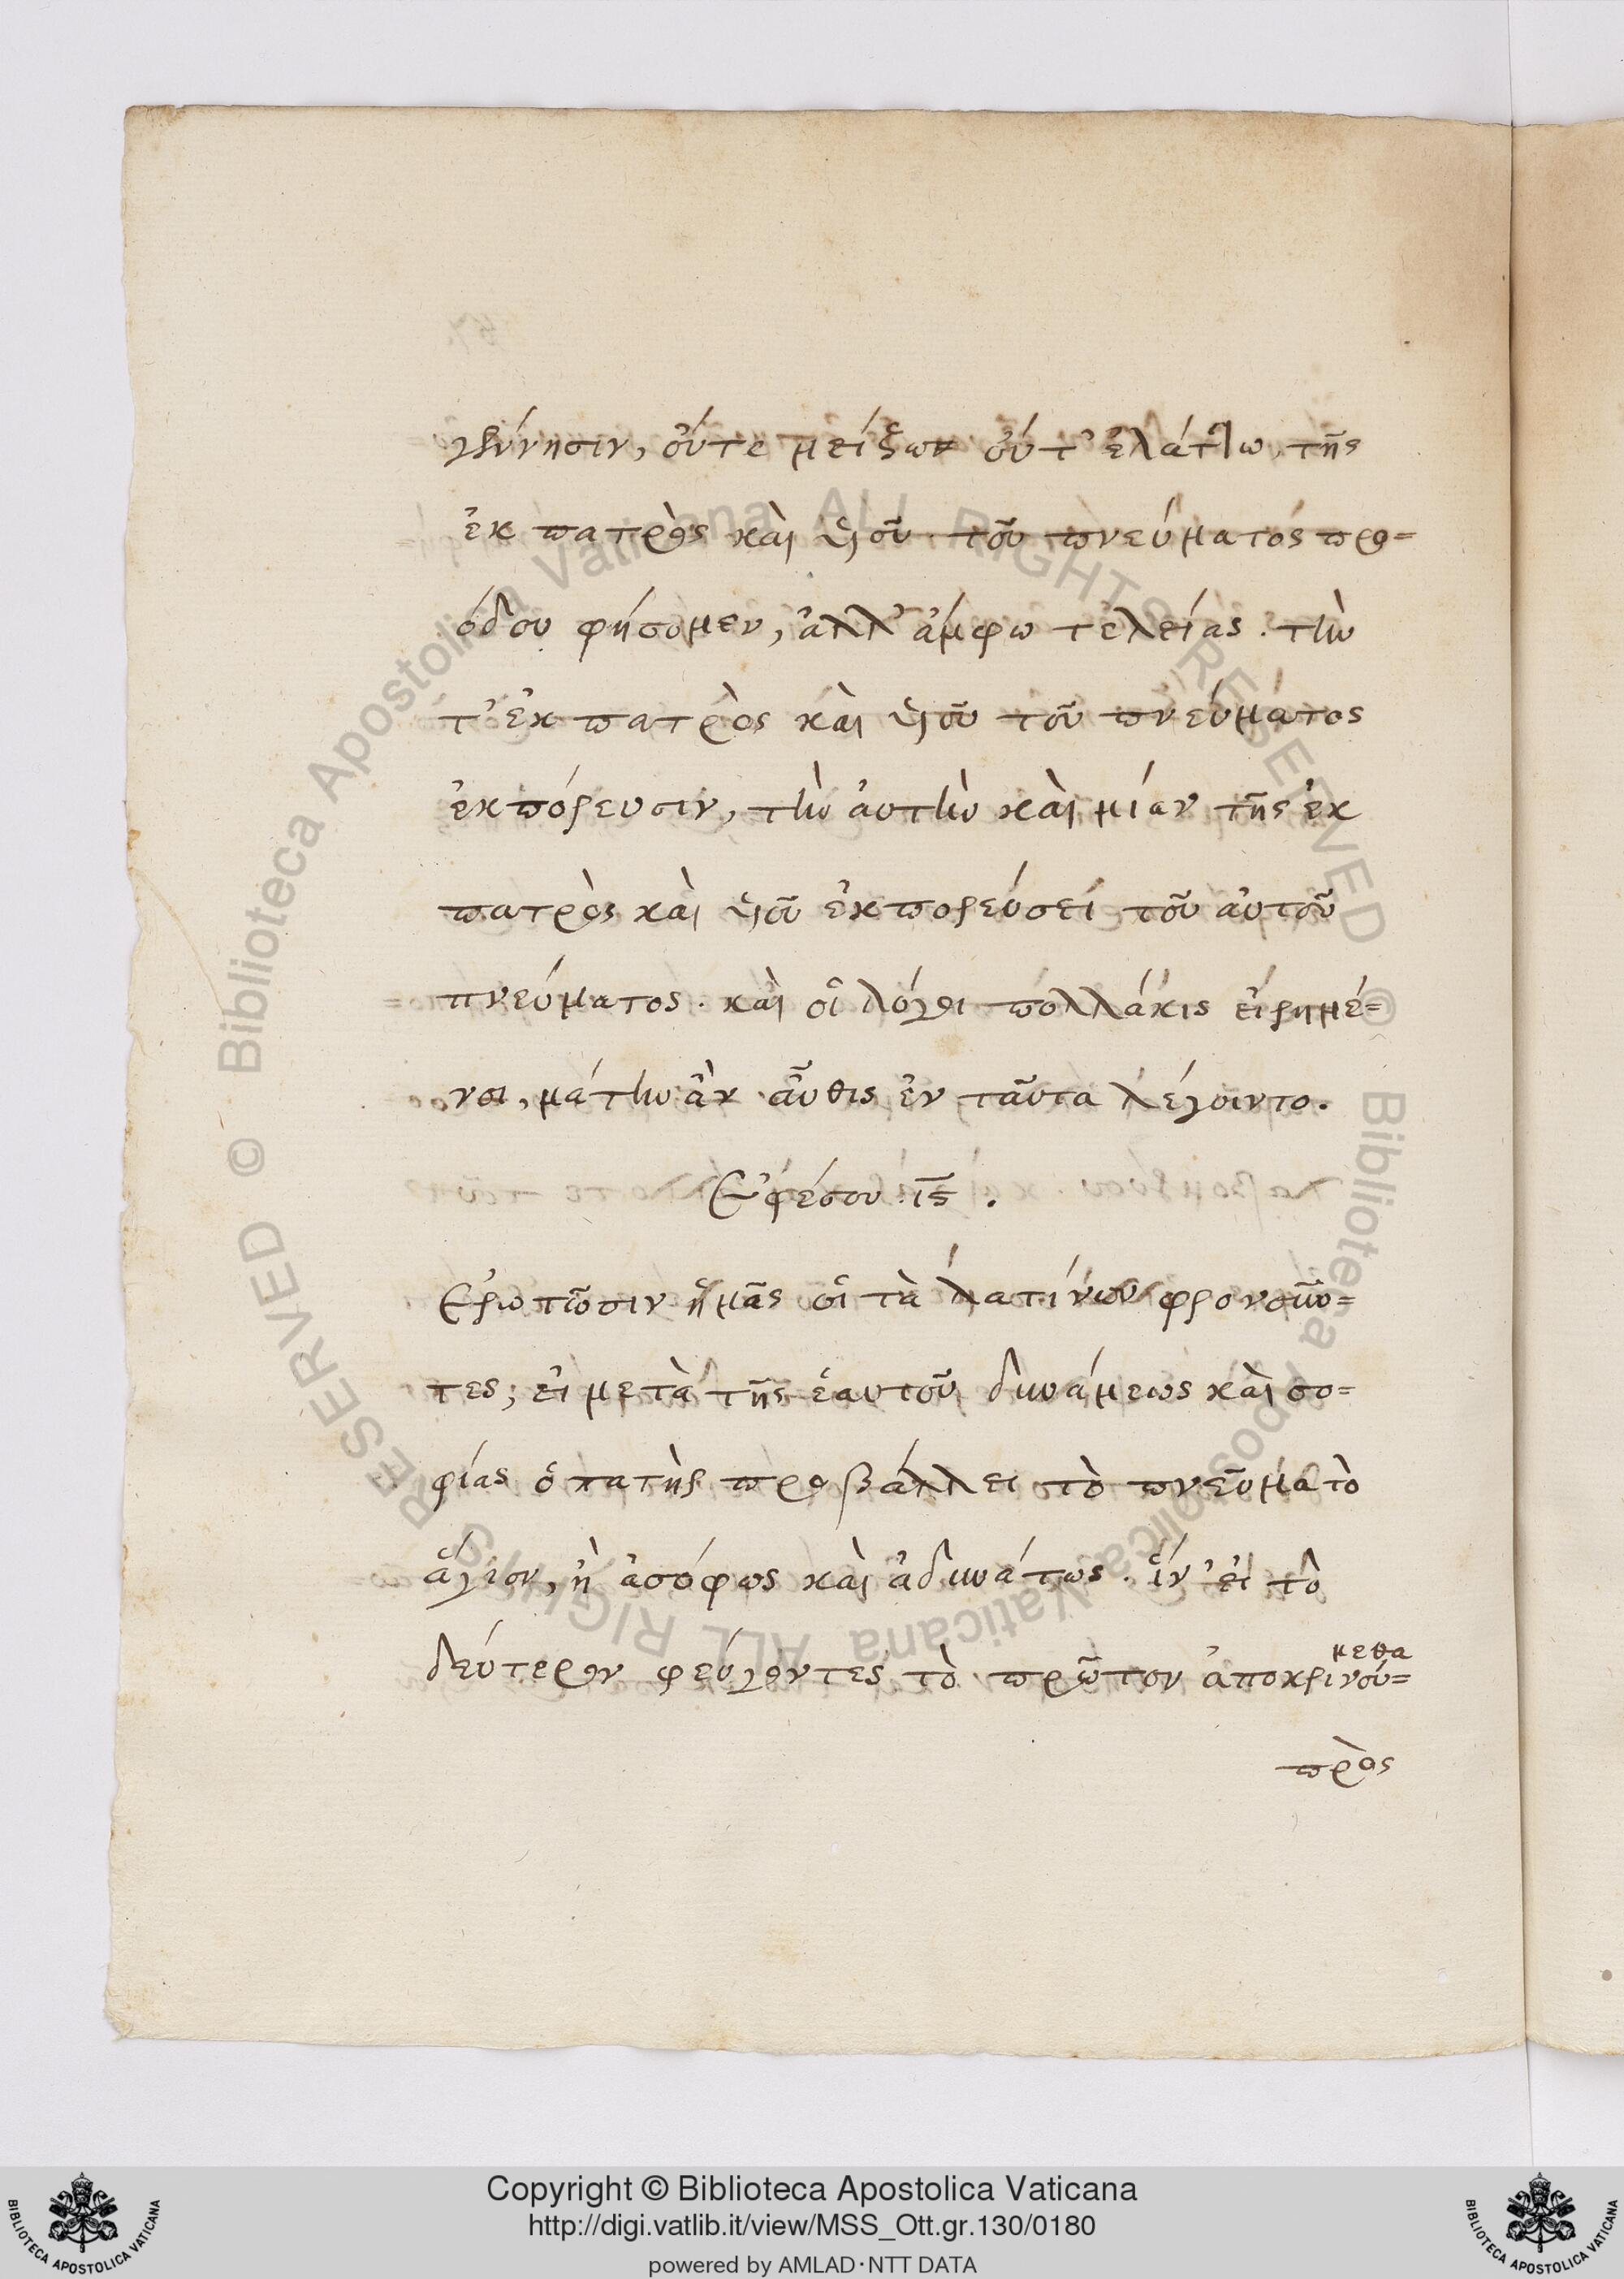 γέννησιν, οὔτε μείζων οὔτ' ἐλάττω τῆς
ἐκ πατρὸς καὶ υἱοῦ τοῦ πνεύματος προ=
όδου φήσομεν, ἀλλ' ἄμφω τελείας. τὴν
τ' ἐκ πατρὸς καὶ υἱοῦ τοῦ πνεύματος
ἐκπόρευσιν, τὴν αὐτὴν καὶ μίαν τῆς ἐκ
πατρὸς καὶ υἱοῦ ἐκπορεύσει τοῦ αὐτοῦ
πνεύματος. καὶ οἱ λόγοι πολλάκις εἰρημέ=
νοι, μάτην ἂν αὖθις ἐν ταῦτα λέγοιντο.
Ἐφέσου ις̅.
Ἐρωτῶσιν ἡμᾶς οἱ τὰ λατίνων φρονοῦν=
τες; εἰ μετὰ τῆς ἑαυτοῦ δυνάμεως καὶ σο=
φίας ὁ πατὴρ προβάλλει τὸ πνεῦμα τὸ
ἅγιον, ἢ ἀσόφως καὶ ἀδυνάτως. ἵν' εἰ τὸ
δεύτερον φεύγοντες τὸ πρῶτον ἀποκρινού=
μεθα
πρὸς
Copyright © Biblioteca Apostolica Vaticana
http://digi.vatlib.it/view/MSS_Ott.gr.130/0180
powered by AMLAD·NTT DATA
© Biblioteca Apostolica Vaticana ALL RIGHTS RESERVED
© Biblioteca Apostolica Vaticana ALL RIGHTS RESERVED
BIBLIOTECA APOSTOLICA VATICANA
BIBLIOTECA APOSTOLICA VATICANA